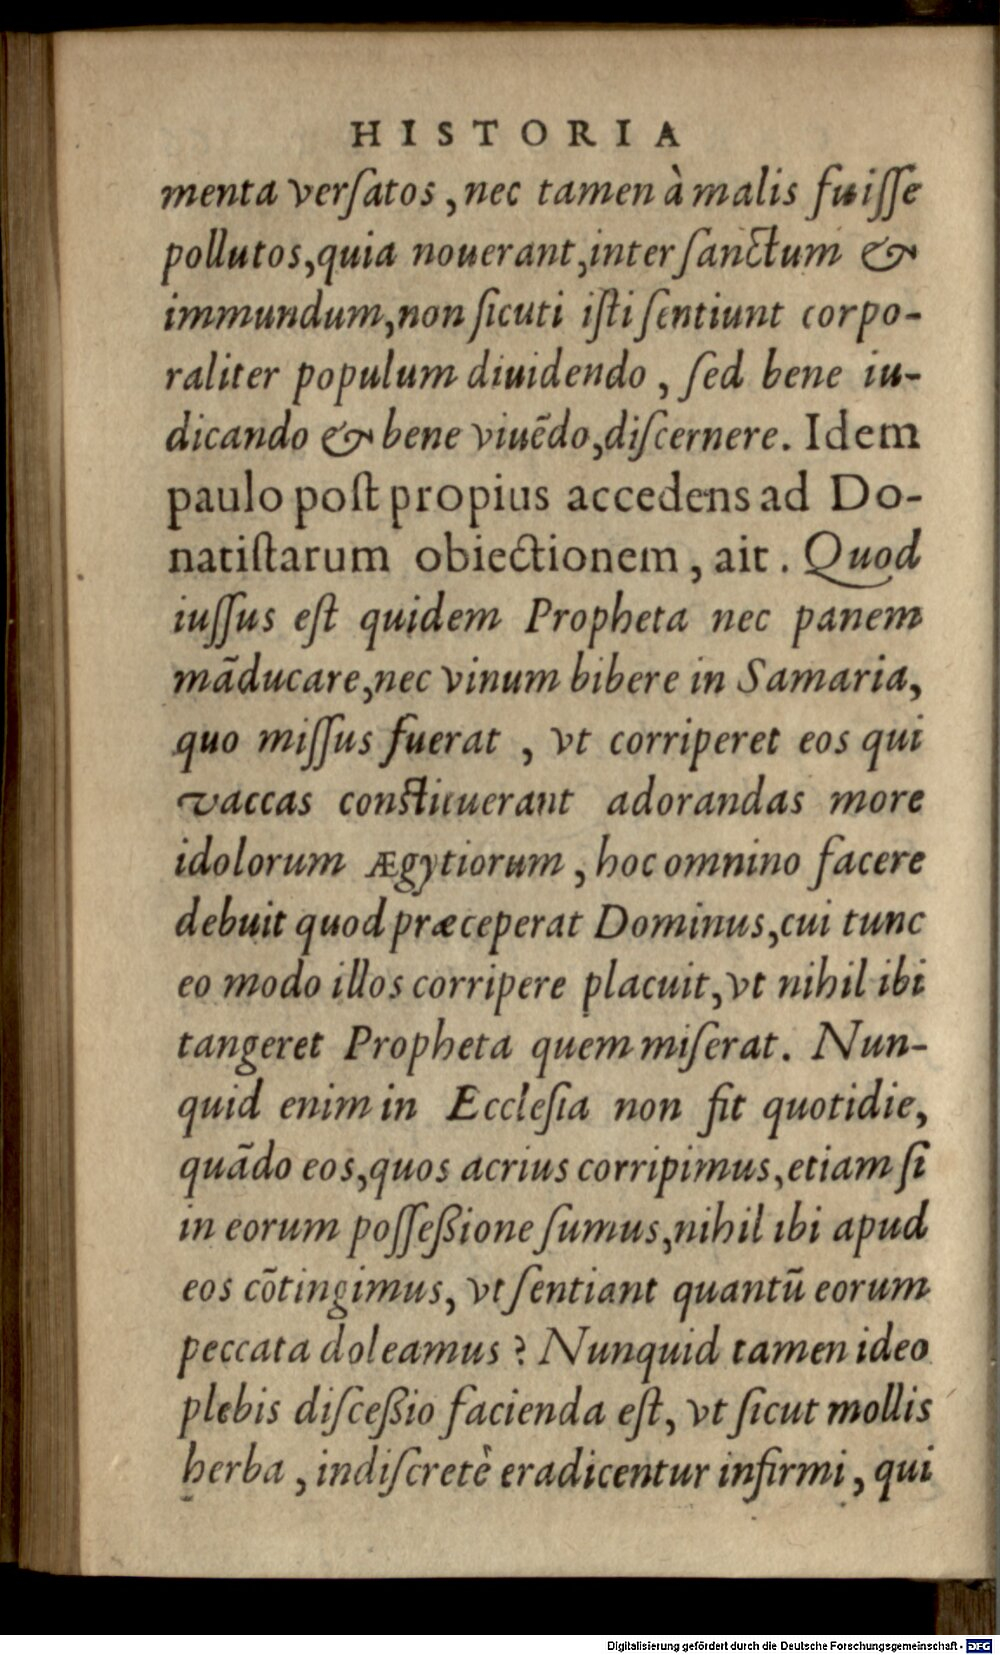 HISTORIA
menta versatos, nec tamen à malis fuisse
pollutos, quia nouerant, inter sanctum &
immundum, non sicuti isti sentiunt corpo-
raliter populum diuidendo, sed bene iu-
dicando & bene viuẽdo, discernere. Idem
paulo post propius accedens ad Do-
natistarum obiectionem, ait. Quod
iussus est quidem Propheta nec panem
mãducare, nec vinum bibere in Samaria,
quo missus fuerat, vt corriperet eos qui
vaccas constituerant adorandas more
idolorum Ægytiorum, hoc omnino facere
debuit quod præceperat Dominus, cui tunc
eo modo illos corripere placuit, vt nihil ibi
tangeret Propheta quem miserat. Nun-
quid enim in Ecclesia non fit quotidie,
quãdo eos, quos acrius corripimus, etiam si
in eorum posseßione sumus, nihil ibi apud
eos cõtingimus, vt sentiant quantũ eorum
peccata doleamus? Nunquid tamen ideo
plebis disceßio facienda est, vt sicut mollis
herba, indiscretè eradicentur infirmi, qui
Digitalisierung gefördert durch die Deutsche Forschungsgemeinschaft - DFG